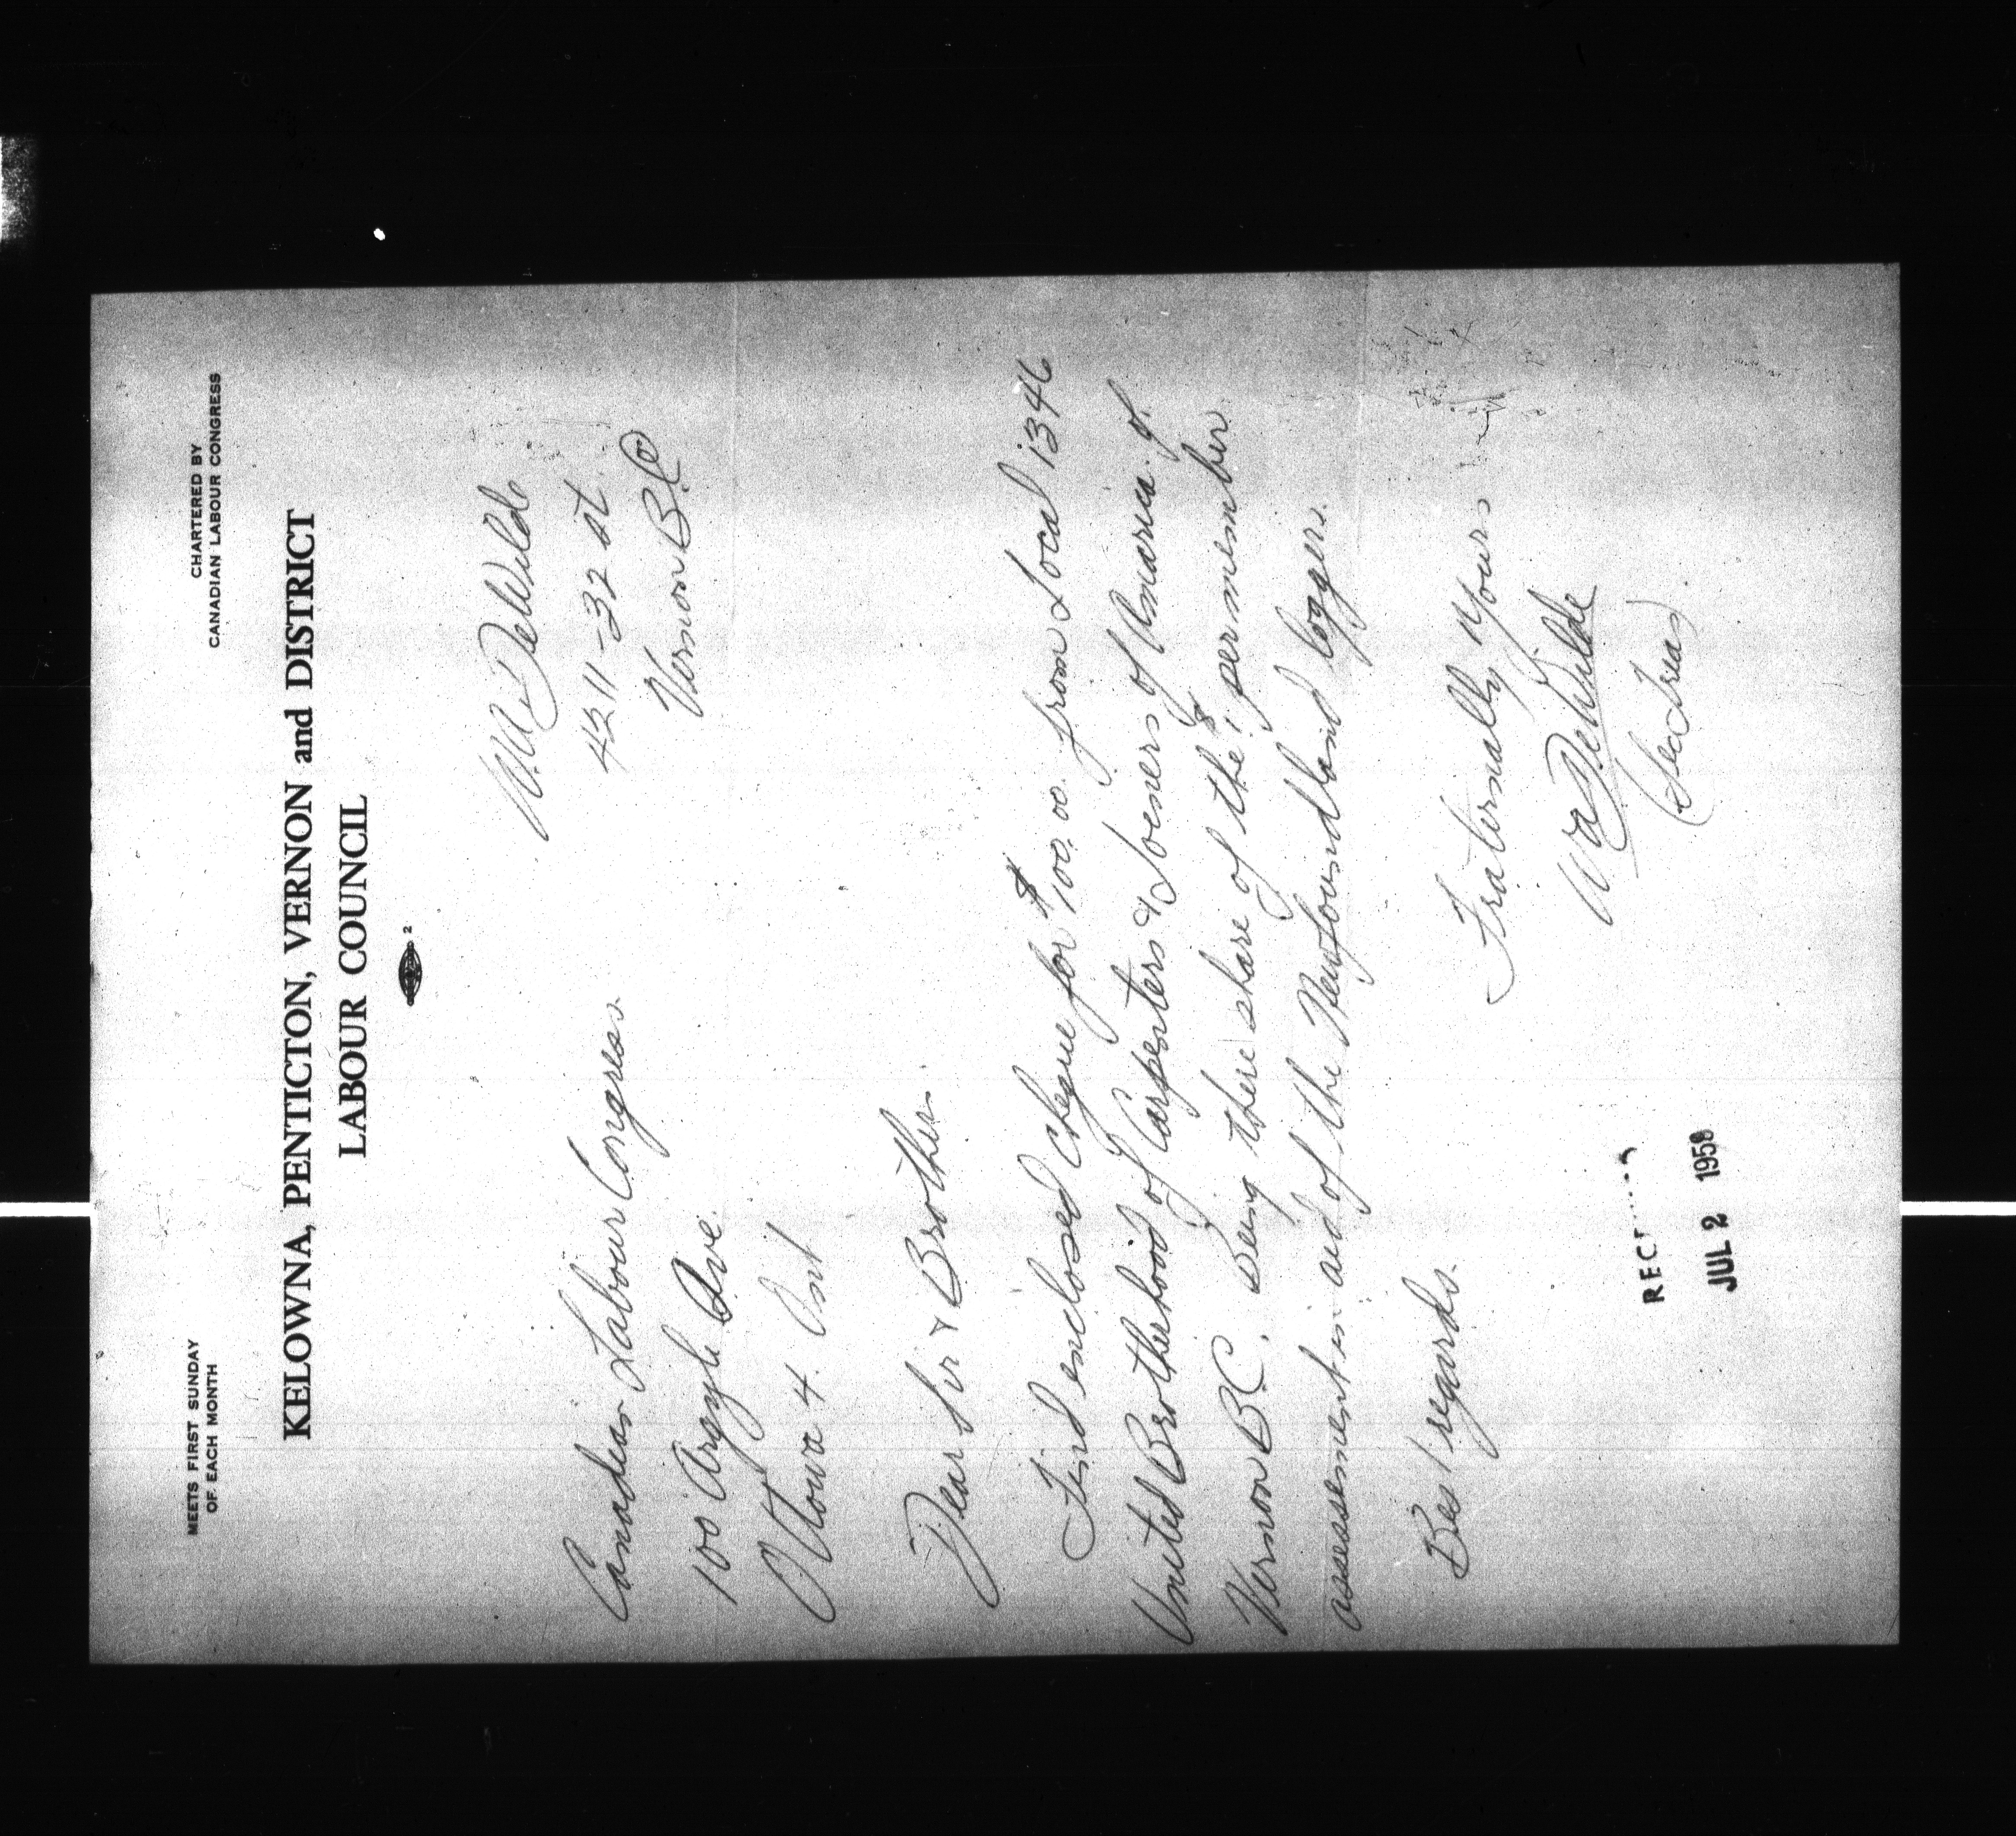 MEETS FIRST SUNDAY
OF EACH MONTH
CHARTERED BY
CANADIAN LABOUR CONGRESS
KELOWNA, PENTICTON, VERNON and DISTRICT
LABOUR COUNCIL
2
Wm DeWilde
4211-32 st
Vernon B.C.
Canadian Labour Congress.
100 Argyle Ave.
Ottowa 4. Ont
Dear Sir & Brother.
Find enclosed cheque for $100.00. from Local 1346
United Brotherhood of Carpenters & Joeners of America of.
Vernon B.C. Being there share of the $1 per member
assessement in aid of the Newfoundland loggers.
Best regards.
Fraternally Yours
Wa DeWilde
(Sec Treas)
JUL 2 1958